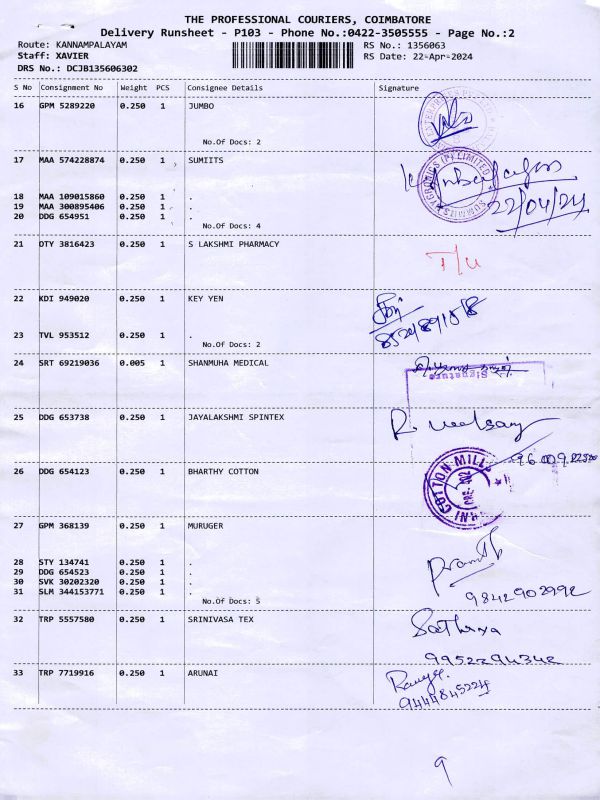 THE PROFESSIONAL COURIERS, COIMBATORE
Delivery Runsheet - P103 - Phone No.:0422-3505555 - Page No.:2
Route: KANNAMPALAYAM RS No.: 1356063
Staff: XAVIER RS Date: 22-Apr-2024
DRS No.: DCJB135606302
S No Consignment No Weight PCS Consignee Details Signature
16 GPM 5289220 0.250 1 JUMBO
No.Of Docs: 2
17 MAA 574228874 0.250 1 SUMIITS
18 MAA 109015860 0.250 1 .
19 MAA 300895406 0.250 1 .
20 DDG 654951 0.250 1 .
22/04/24
No.Of Docs: 4
21 DTY 3816423 0.250 1 S LAKSHMI PHARMACY
T/U
22 KDI 949020 0.250 1 KEY YEN
23 TVL 953512 0.250 1 .
No.Of Docs: 2
24 SRT 69219036 0.005 1 SHANMUHA MEDICAL
Signature
25 DDG 653738 0.250 1 JAYALAKSHMI SPINTEX
26 DDG 654123 0.250 1 BHARTHY COTTON
COTTON MILLS
27 GPM 368139 0.250 1 MURUGER
28 STY 134741 0.250 1 .
29 DDG 654523 0.250 1 .
30 SVK 30202320 0.250 1 .
31 SLM 344153771 0.250 1 .
9842902992
No.Of Docs: 5
32 TRP 5557580 0.250 1 SRINIVASA TEX
Sathya
9952294342
33 TRP 7719916 0.250 1 ARUNAI
9444845224
9